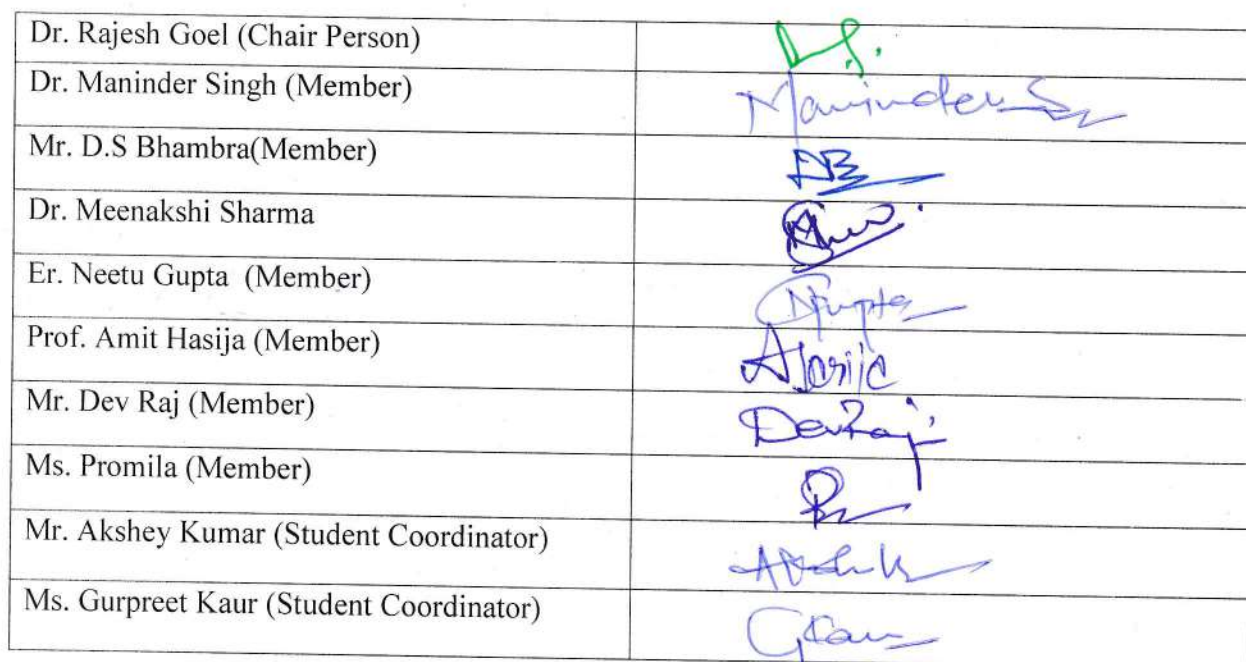 Dr. Rajesh Goel (Chair Person)
Dr. Maninder Singh (Member)
Maninder
Mr. D.S Bhambra(Member)
DB
Dr. Meenakshi Sharma
Er. Neetu Gupta (Member)
NGupta
Prof. Amit Hasija (Member)
Mr. Dev Raj (Member)
DevRaj
Ms. Promila (Member)
Mr. Akshey Kumar (Student Coordinator)
Ms. Gurpreet Kaur (Student Coordinator)
GKaur